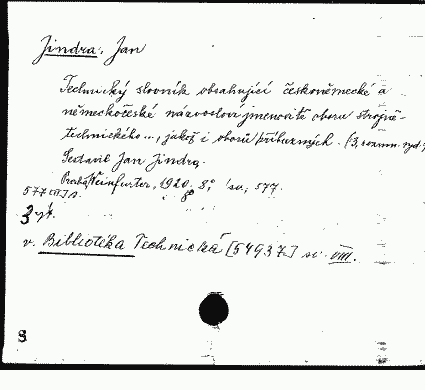 Jindra, Jan
Technický slovník obsahující českoněmecké a
německočeské názvosloví jmenovitě oboru strojně-
technického..., jakož i oborů příbuzných. (3, rozmn. vyd.)
Sestavil Jan Jindra.
Praha, Weinfurter, 1920. 8°, sv. 577.
577
3 výt.
v. Bibliotéka Technická [54937] sv. VIII.
8